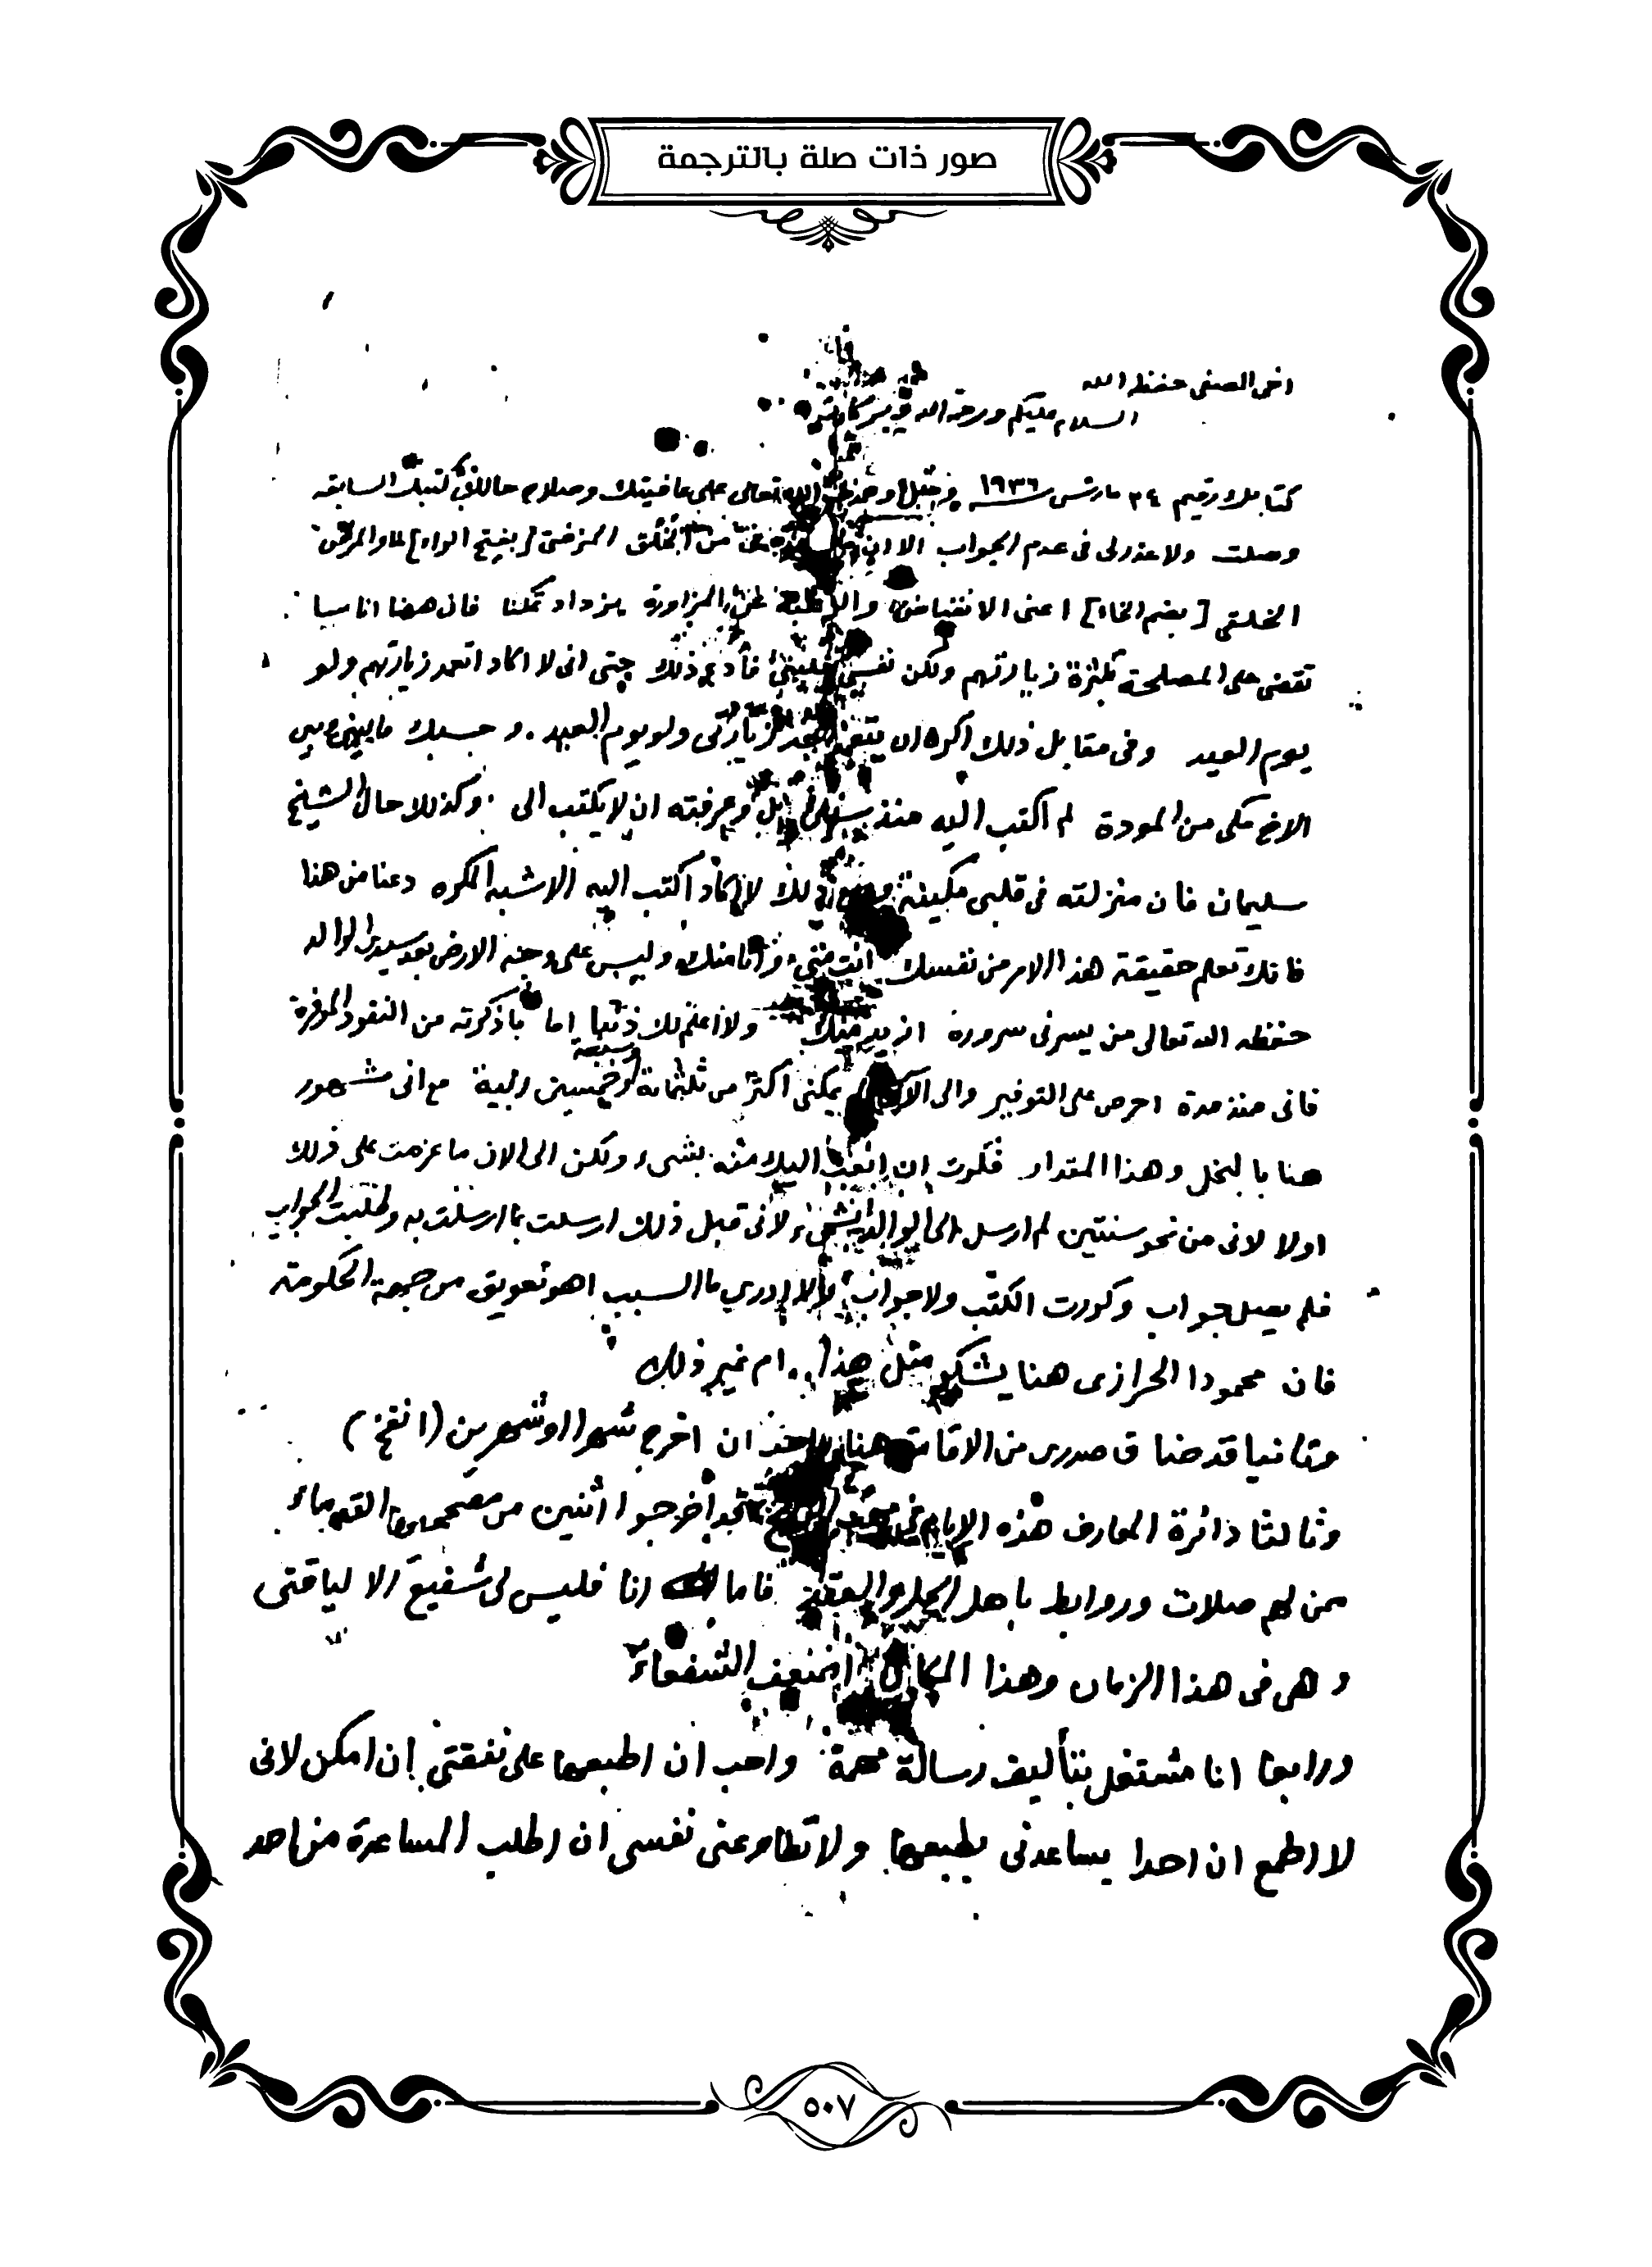 صور ذات صلة بالترجمة
اخي الصفي حفظه الله
السلام عليكم ورحمة الله وبركاته
كتابك رقيم ٢٤ مارتس سنة ١٩٣٦ وحمدت الله تعالى على عافيتك وصلاح حالك كتبك السابقه
وصلت ولا عذر لي في عدم الجواب الا ان من الخلق [بفتح الواو] المرض
الخلقي [بضم الخاء] اعني الانقباض عن المزاورة يزداد تمكنا فان هنا اناسا
تقضي علي المصلحة بكثرة زيارتهم ولكن نفسي ذلك حتى اني لا اكاد اتعمد زيارتهم ولو
يوم العيد وفي مقابل ذلك اكره ان احد زيارتي ولو يوم العيد . وحسبك ما بيني وبين
الاخ مكي من المودة لم اكتب اليه منذ بل وعرفته ان لا يكتب الي . وكذلك حال الشيخ
سليمان فان منزلته في قلبي مكينة ذلك لا اكاد اكتب اليه الا شبه المكره دعنا من هذا
فانك تعلم حقيقة هذا الامر من نفسك انت مني وانا منك وليس على وجه الارض بعد سيدي الوالد
حفظه الله تعالى من يسرني سروره ازيد منك ولا اعلم لك ذنبا اما ما ذكرته من النقود الموفرة
فاني منذ مدة احرص على التوفير والى الآن لم يمكني اكثر من ثلثمائة وسبعة وخمسين ربية مع اني مشهور
هنا بالبخل وهذا المقدار فكرت ان ابعث اليك منه بشيء ولكن الى الان ما عزمت على ذلك
اولا لاني من نحو سنتين لم ارسل الى الوالد بشيء لاني قبل ذلك ارسلت بما ارسلت به وطلبت الجواب
فلم يصل جواب وكررت الكتب ولا جواب لا ادري ما السبب اهو تعويق من جهة الحكومة
فان محمودا الحرازي هنا يشكو مثل هذا .. ام غير ذلك
وثانيا قد ضاق صدري من الاقامة هنا ان اخرج شهرا او شهرين (انفخ)
وثالثا دائرة المعارف هذه الايام في اخرجوا اثنين من مصححيها القدماء
ممن لهم صلات وروابط باهل الحل والعقد فاما انا فليس لي شفيع الا لياقتي
وهي في هذا الزمان وهذا المكان اضعف الشفعاء
ورابعا انا مشتغل بتأليف رسالة مهمة واحب ان اطبعها على نفقتي إن امكن لاني
لا اطمع ان احدا يساعدني بطبعها ولا تطاوعني نفسي ان اطلب المساعدة من احد
٥٠٧